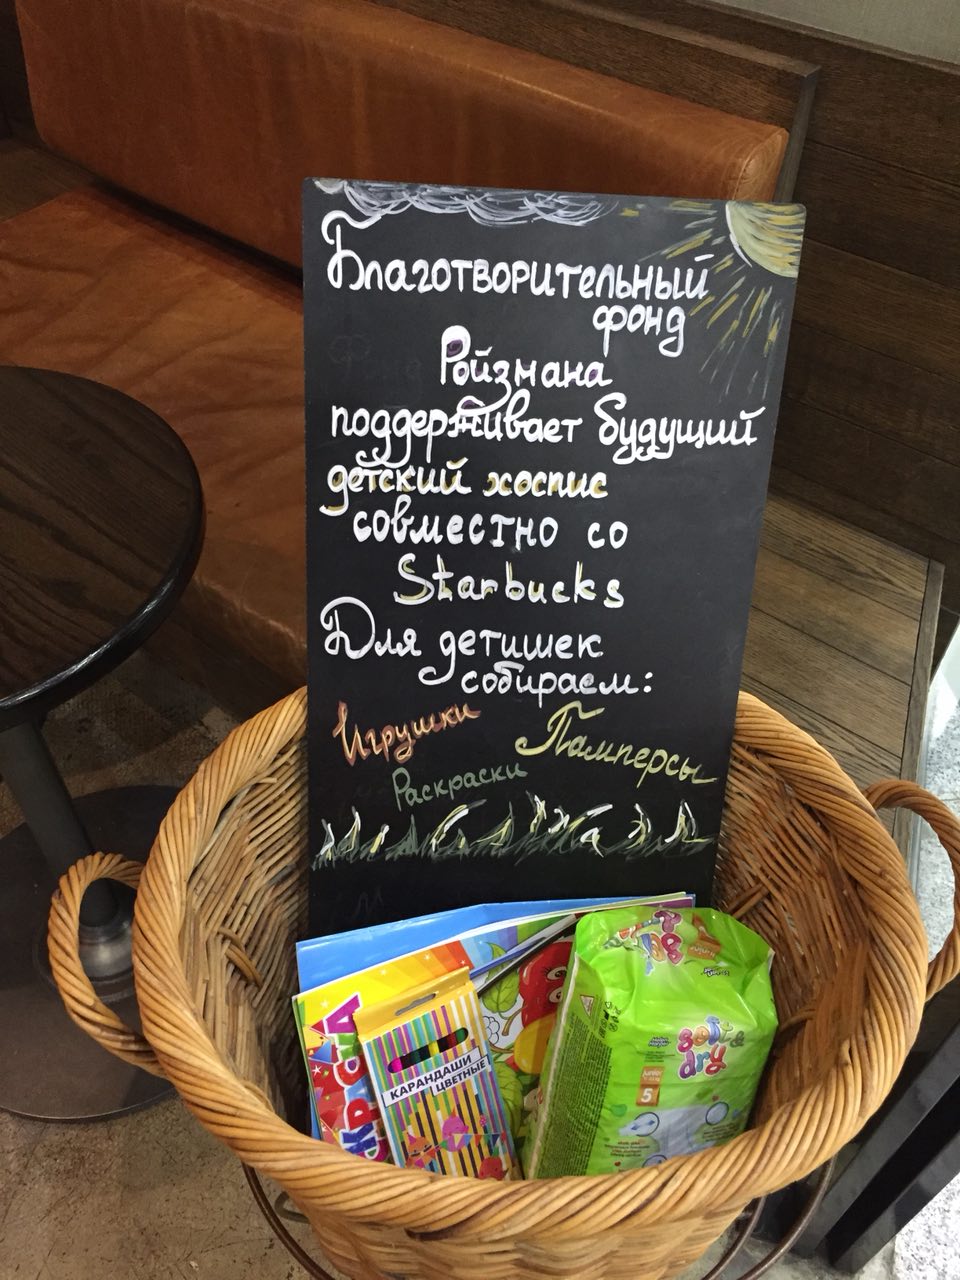 Благотворительный
фонд
Ройзмана
поддерживает будущий
детский хоспис
совместно со
Starbucks
Для детишек
собираем:
Игрушки
Памперсы
Раскраски
КАРАНДАШИ
ЦВЕТНЫЕ
soft &
dry
junior
5